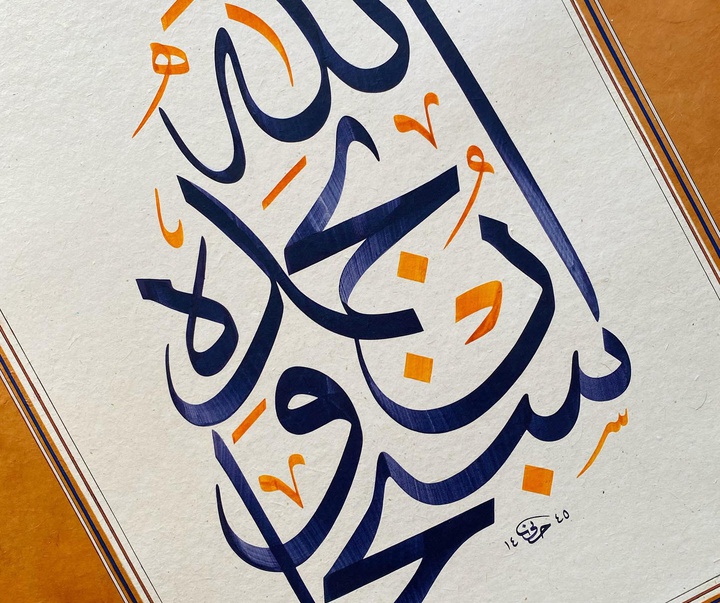 سبحان الله وبحمده
١٤٤٥